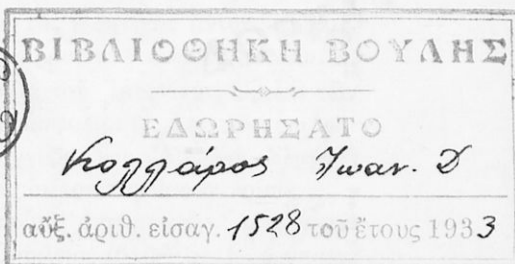 ΒΙΒΛΙΟΘΗΚΗ ΒΟΥΛΗΣ
ΕΔΩΡΗΣΑΤΟ
Κολλάρος Ἰωαν. Δ
αὔξ. ἀριθ. εἰσαγ. 1528 τοῦ ἔτους 1933